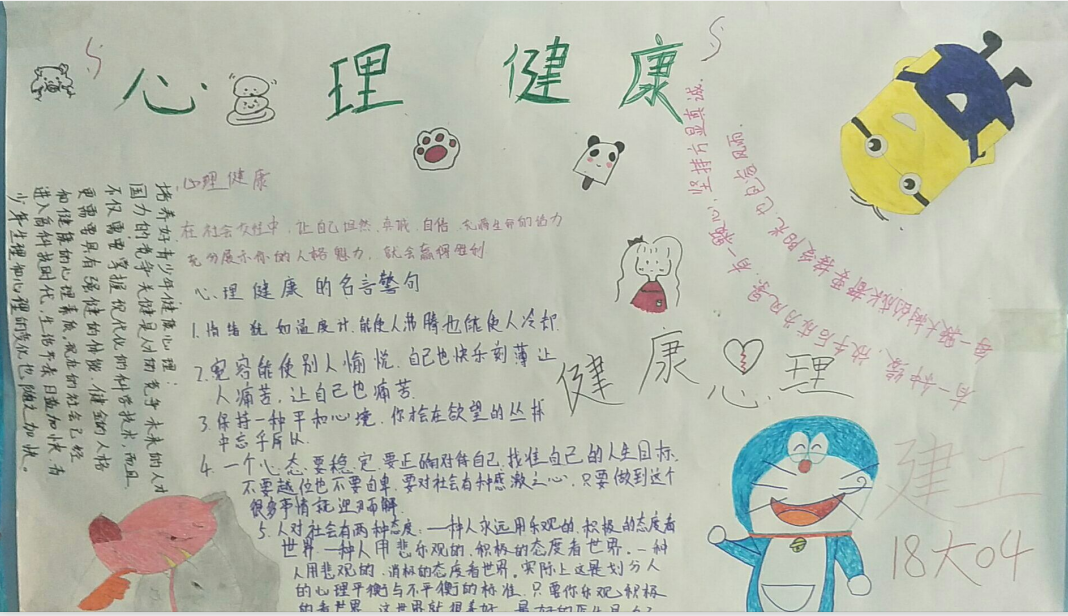 心理健康
心理健康
在社会交往中,让自己坦然、真诚、自信、充满生命的活力
充分展示你的人格魅力,就会赢得胜利
心理健康的名言警句
1.情绪犹如温度计,能使人沸腾也能使人冷却
2.宽容能使别人愉悦,自己也快乐刻薄让
人痛苦,让自己也痛苦.
3.保持一种平和心境,你会在欲望的丛林
中忘乎所以.
4.一个心态要稳定要正确对待自己,找准自己的人生目标,
不要越位也不要自卑,要对社会有种感激之心,只要做到这个
很多事情就迎刃而解.
5.人对社会有两种态度:一种人永远用乐观的,积极的态度看
世界一种人用悲乐观的,积极的态度看世界。一种
人用悲观的,消极的态度看世界。实际上这是划分人
的心理平衡与不平衡的标准.只要你乐观,积极
的看世界,这世界就很美好
培养好青少年健康心理:
国力的竞争关键是人才的竞争未来的人才
不仅需要掌握现代化的科学技术,而且
更需要具有强健的体魄、健全的人格
和健康的心理素质,现在的社会已经
进入高科技时代,生活节奏日益加快,青
少年生理和心理的变化也随之加快。
有一颗心,坚持方显真诚.
每一棵大树的成长都要接受阳光,也包含风雨.
有一种爱,放手后成为风景.
健康心理
建工
18大04